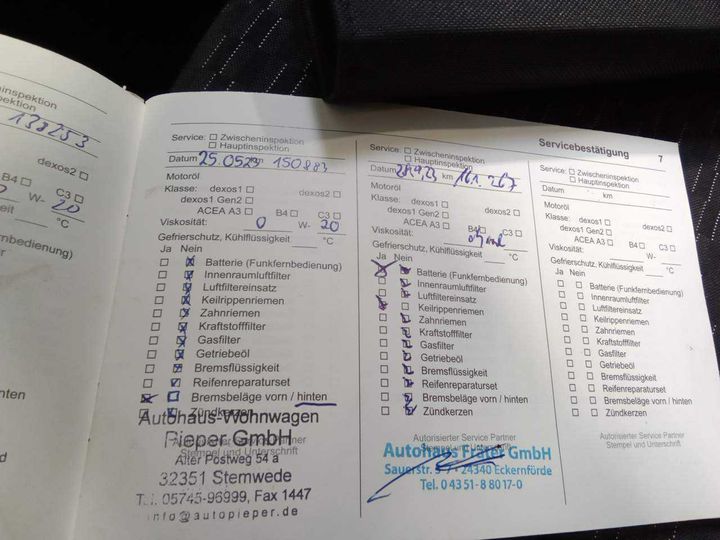 inspektion
pektion
138253
dexos2 □
B4 □ C3 □
W- 20
°C
nfernbedienung)
nten
Servicebestätigung 7
Service: □ Zwischeninspektion
□ Hauptinspektion
Datum 25.0523 150883
Motoröl
Klasse: dexos1 □ dexos2 □
dexos1 Gen2 □
ACEA A3 □ B4 □ C3 □
Viskosität: 0 W- 20
Gefrierschutz, Kühlflüssigkeit °C
Ja Nein
Batterie (Funkfernbedienung)
Innenraumluftfilter
Luftfiltereinsatz
Keilrippenriemen
Zahnriemen
Kraftstofffilter
Gasfilter
Getriebeöl
Bremsflüssigkeit
Reifenreparaturset
Bremsbeläge vorn / hinten
Zündkerzen
Autorisierter Service Partner
Stempel und Unterschrift
Autohaus-Wohnwagen
Pieper GmbH
Alter Postweg 54 a
32351 Stemwede
Tel. 05745-96999, Fax 1447
info@autopieper.de
Service: □ Zwischeninspektion
□ Hauptinspektion
Datum km 161.267
Motoröl
Klasse: dexos1 □ dexos2 □
dexos1 Gen2 □
ACEA A3 □ B4 □ C3 □
Viskosität: W-
Gefrierschutz, Kühlflüssigkeit °C
Ja Nein
Batterie (Funkfernbedienung)
Innenraumluftfilter
Luftfiltereinsatz
Keilrippenriemen
Zahnriemen
Kraftstofffilter
Gasfilter
Getriebeöl
Bremsflüssigkeit
Reifenreparaturset
Bremsbeläge vorn / hinten
Zündkerzen
Autorisierter Service Partner
Stempel und Unterschrift
Autohaus Frater GmbH
Sauerstr. 5-7 · 24340 Eckernförde
Tel. 0 43 51 - 8 80 17-0
Service: □ Zwischeninspektion
□ Hauptinspektion
Datum km
Motoröl
Klasse: dexos1 □ dexos2 □
dexos1 Gen2 □
ACEA A3 □ B4 □ C3 □
Viskosität: W-
Gefrierschutz, Kühlflüssigkeit °C
Ja Nein
□ □ Batterie (Funkfernbedienung)
□ □ Innenraumluftfilter
□ □ Luftfiltereinsatz
□ □ Keilrippenriemen
□ □ Zahnriemen
□ □ Kraftstofffilter
□ □ Gasfilter
□ □ Getriebeöl
□ □ Bremsflüssigkeit
□ □ Reifenreparaturset
□ □ Bremsbeläge vorn / hinten
□ □ Zündkerzen
Autorisierter Service Partner
Stempel und Unterschrift